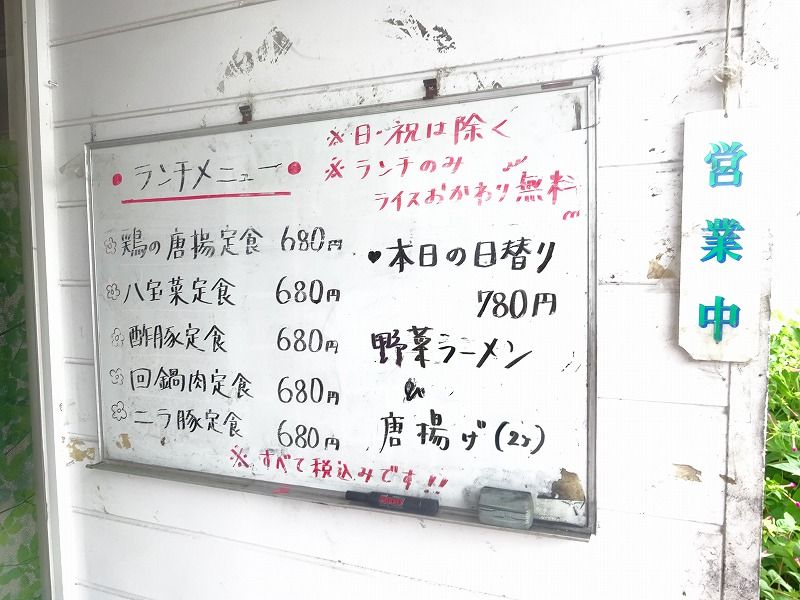 ※日・祝は除く
・ランチメニュー・
※ランチのみ
ライスおかわり無料
鶏の唐揚定食 680円
八宝菜定食 680円
酢豚定食 680円
回鍋肉定食 680円
ニラ豚定食 680円
※すべて税込みです!!
♥本日の日替り
780円
野菜ラーメン
唐揚げ(2ヶ)
営業中